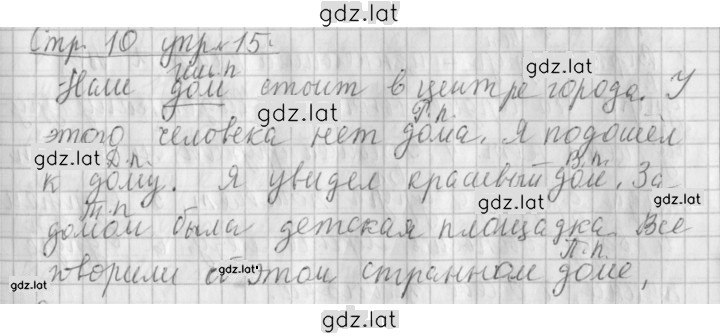 gdz.lat
Стр. 10 упр. 15.
Им.п
Наш дом стоит в центре города. У
gdz.lat
gdz.lat
Р.п.
этого человека нет дома. Я подошёл
gdz.lat
Д.п.
В.п.
к дому. Я увидел красивый дом. За
gdz.lat
Т.п
домом была детская площадка. Все
П.п.
говорили об этом странном доме,
gdz.lat
gdz.lat
gdz.lat
gdz.lat